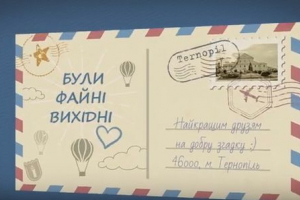 БУЛИ
ФАЙНІ
ВИХІДНІ
Ternopil
Найкращим друзям
на добру згадку :)
46000, м. Тернопіль